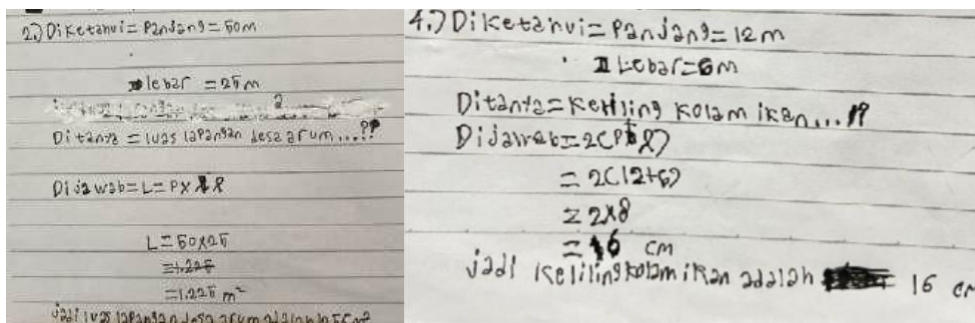 2.) Diketahui = Panjang = 50m
lebar = 25m
Ditanya = luas lapangan desa arum...??
Dijawab = L = P x l
L = 50x25
= 1.225
= 1.225 m²
Jadi luas lapangan desa arum adalah
4.) Diketahui = Panjang = 12m
Lebar = 6m
Ditanya = Keliling Kolam ikan...!?
Dijawab = 2(P+l)
= 2(12+6)
= 2x8
= 16 cm
Jadi Keliling kolam ikan adalah 16 cm